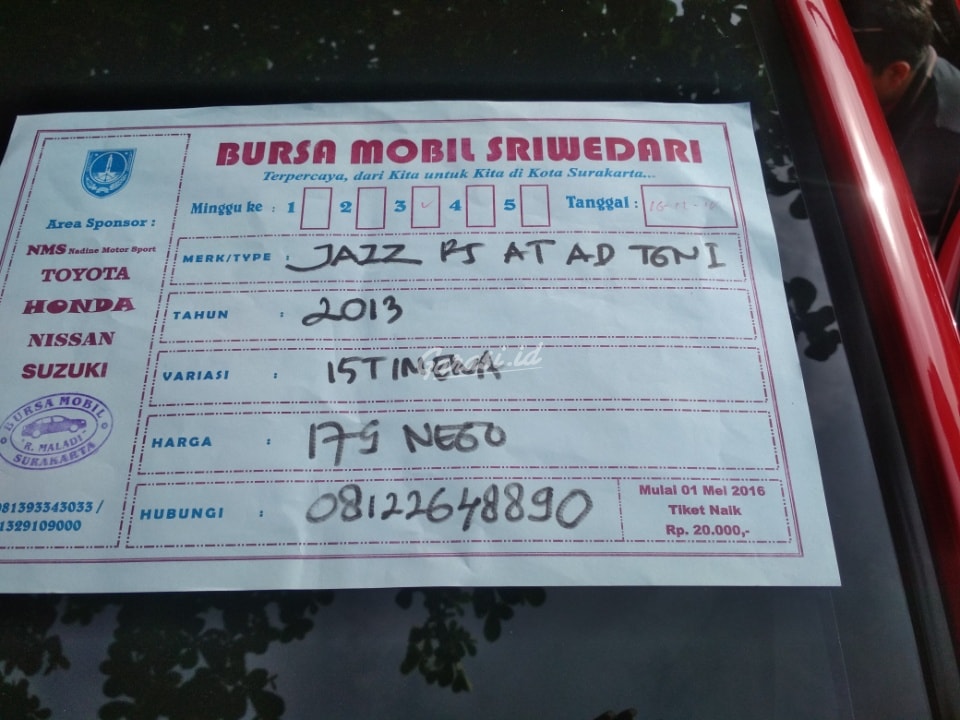 BURSA MOBIL SRIWEDARI
Terpercaya, dari Kita untuk Kita di Kota Surakarta...
Minggu ke : 1 2 3 ✓ 4 5 Tanggal :
Area Sponsor :
NMS Nadine Motor Sport
TOYOTA
HONDA
NISSAN
SUZUKI
BURSA MOBIL
"R. MALADI"
SURAKARTA
081393343033 /
1329109000
MERK/TYPE : JAZZ RS AT AD TGN I
TAHUN : 2013
VARIASI : 15TIMEWA
HARGA : 179 NEGO
HUBUNGI : 08122648890
Mulai 01 Mei 2016
Tiket Naik
Rp. 20.000,-